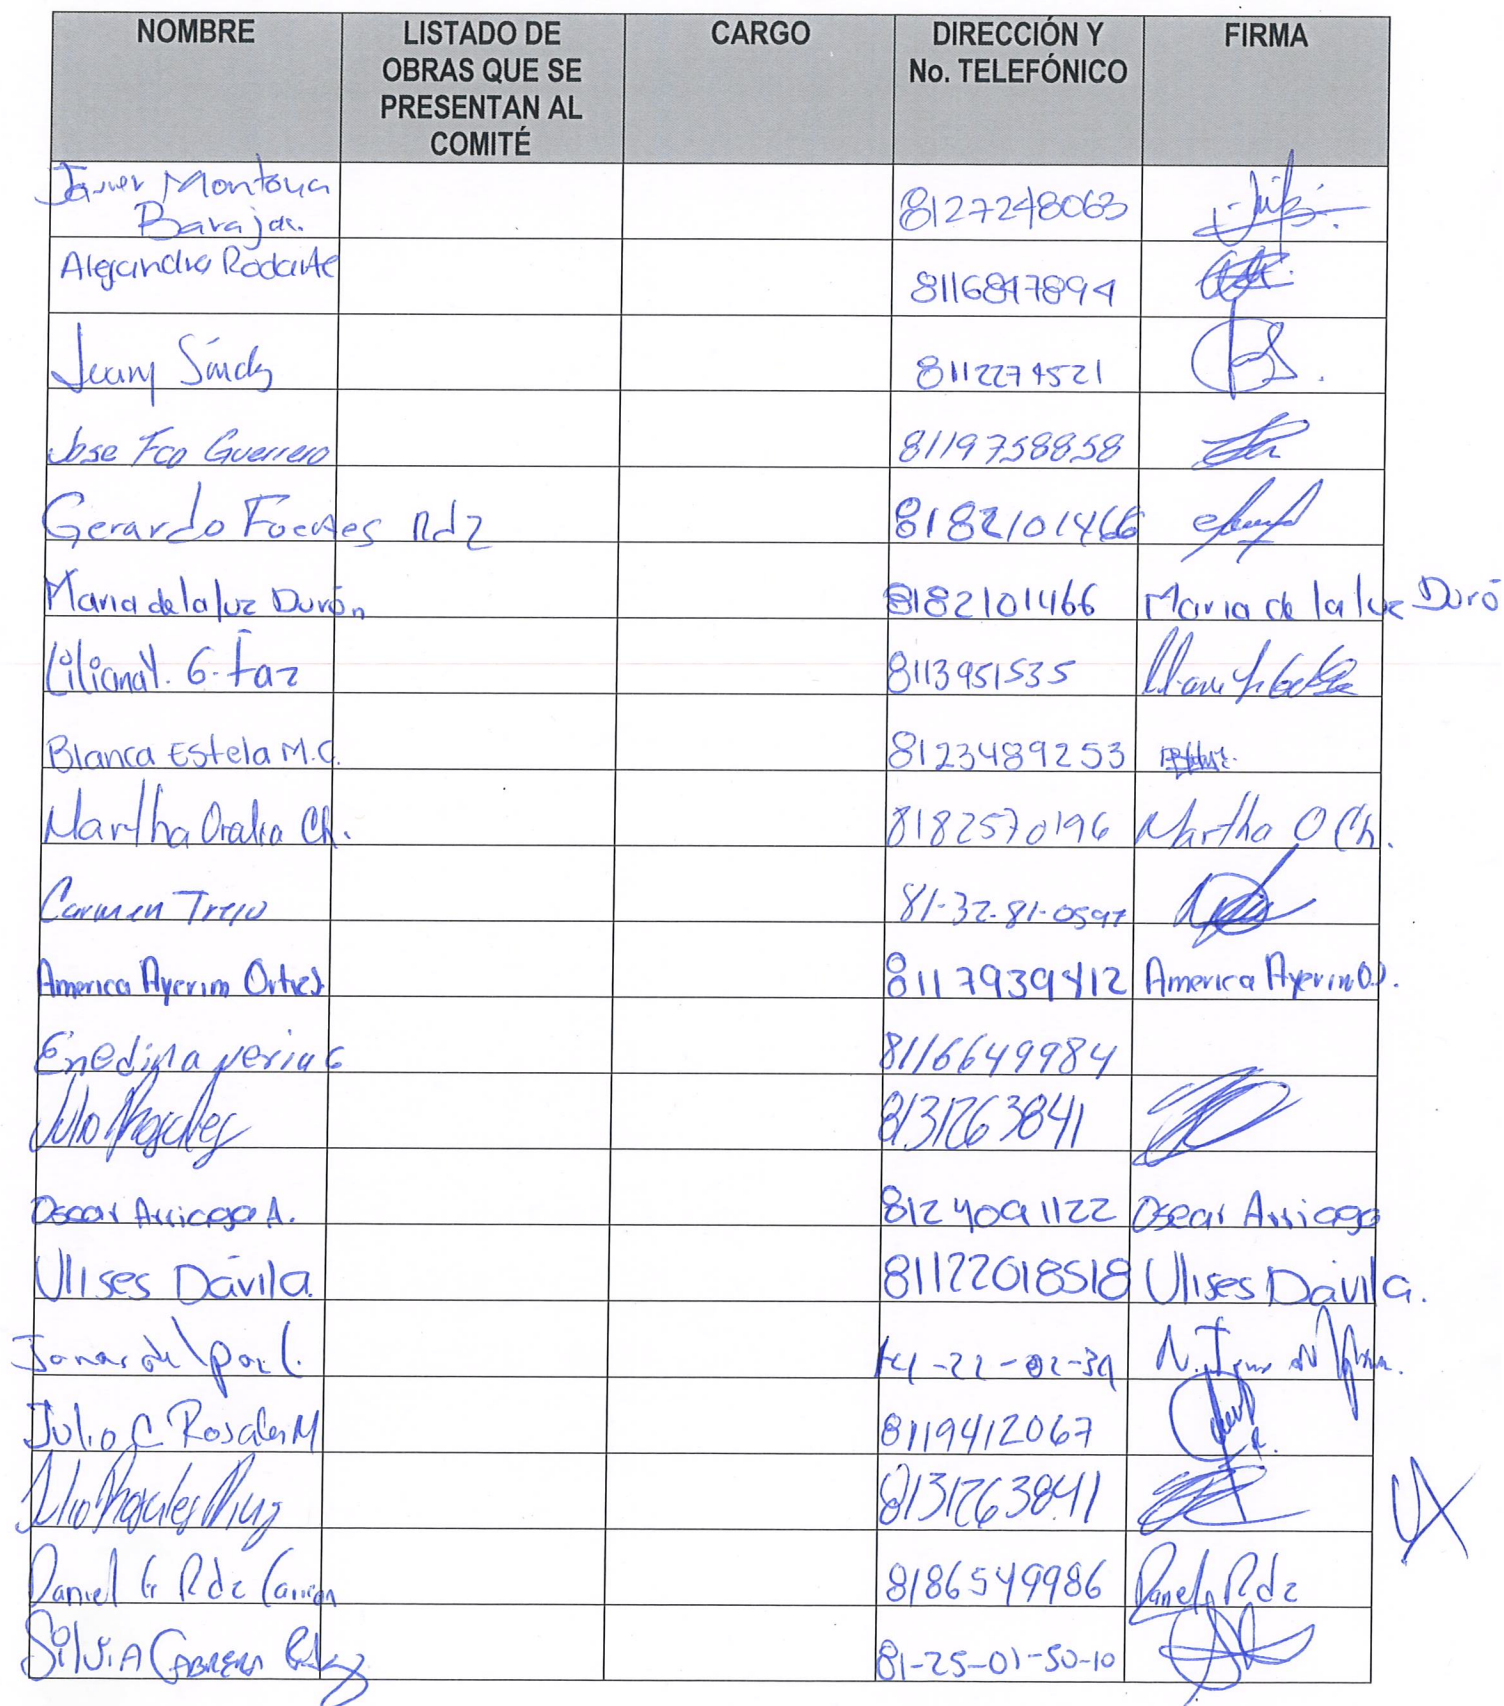 NOMBRE
LISTADO DE
OBRAS QUE SE
PRESENTAN AL
COMITÉ
CARGO
DIRECCIÓN Y
No. TELEFÓNICO
FIRMA
Javier Montoya
Barajas.
8127248063
Alejandra Rodarte
8116847894
Juany Sánchz
8112274521
Jose Fco Guerrero
8119758858
Gerardo Fuentes Rdz
8182101466
Maria de la luz Durón
8182101466 Maria de la luz Duró
Liliana Y. G. Faz
8113951535
Blanca Estela M.C.
8123489253
Martha Oralia Ch.
8182570196 Martha O Ch.
Carmen Trejo
81-32-81-0597
America Ayerim Ortiz
8117939412 America Ayerin O.
Enedina
8116649984
Julio
8131263841
Oscar Arriaga A.
8124091122 Oscar Arriaga
Ulises Dávila.
81122018518 Ulises Dávila.
-22-02-39
Julio C Rosales M
8119412067
Julio
8131263841
Daniel G Rdz
8186549986 Daniel Rdz
Silvia Cabrera
81-25-01-50-10